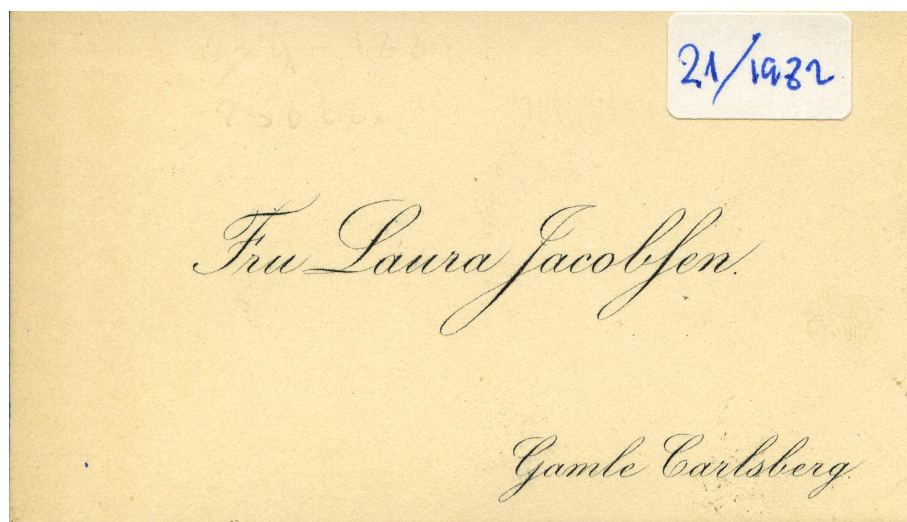 21/1982
Fru Laura Jacobſen.
Gamle Carlsberg.